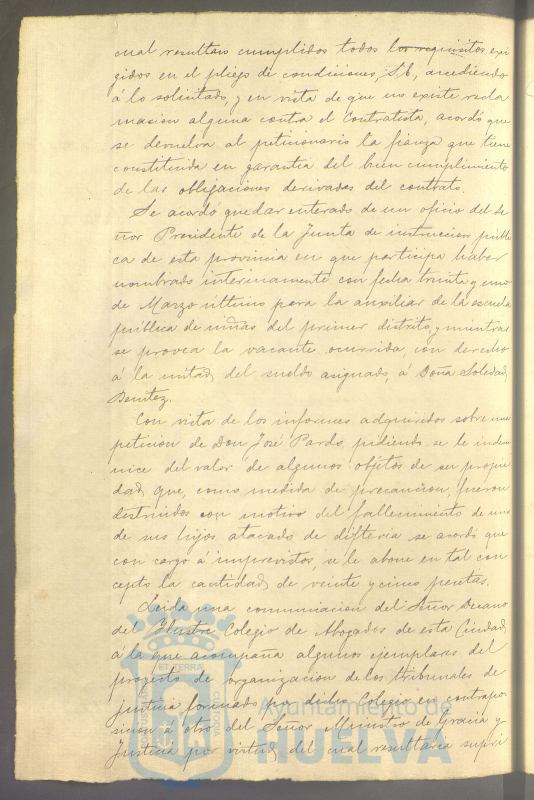 cual resultan cumplidos todos los requisitos exi
gidos en el pliego de condiciones, S.E, accediendo
á lo solicitado, y en vista de que no existe recla
macion alguna contra el Contratista, acordó que
se devuelva al peticionario la fianza que tiene
constituida en garantia del buen cumplimiento
de las obligaciones derivadas del contrato.
Se acordó quedar enterado de un oficio del Se
ñor Presidente de la Junta de instruccion públi
ca de esta provincia en que participa haber
nombrado interinamente con fecha treinta y uno
de Marzo último para la auxiliar de la escuela
pública de niñas del primer distrito, y mientras
se provea la vacante ocurrida, con derecho
á la mitad del sueldo asignado, á Doña Soledad
Benitez.
Con vista de los informes adquiridos sobre una
peticion de Don José Pardo, pidiendo se le indem
nice del valor de algunos objetos de su propie
dad que, como medida de precaucion, fueron
destruidos con motivo del fallecimiento de uno
de sus hijos atacado de difteria se acordó que
con cargo á imprevistos, se le abone en tal con
cepto la cantidad de veinte y cinco pesetas.
Leida una comunicacion del Señor Decano
del Ilustre Colegio de Abogados de esta Ciudad
á la que acompaña algunos ejemplares del
proyecto de organizacion de los tribunales de
justicia formado por dicho Colegio en contrapo
sicion á otro del Señor Ministro de Gracia y
Justicia por virtud del cual resultaria supri
Ayuntamiento de
HUELVA